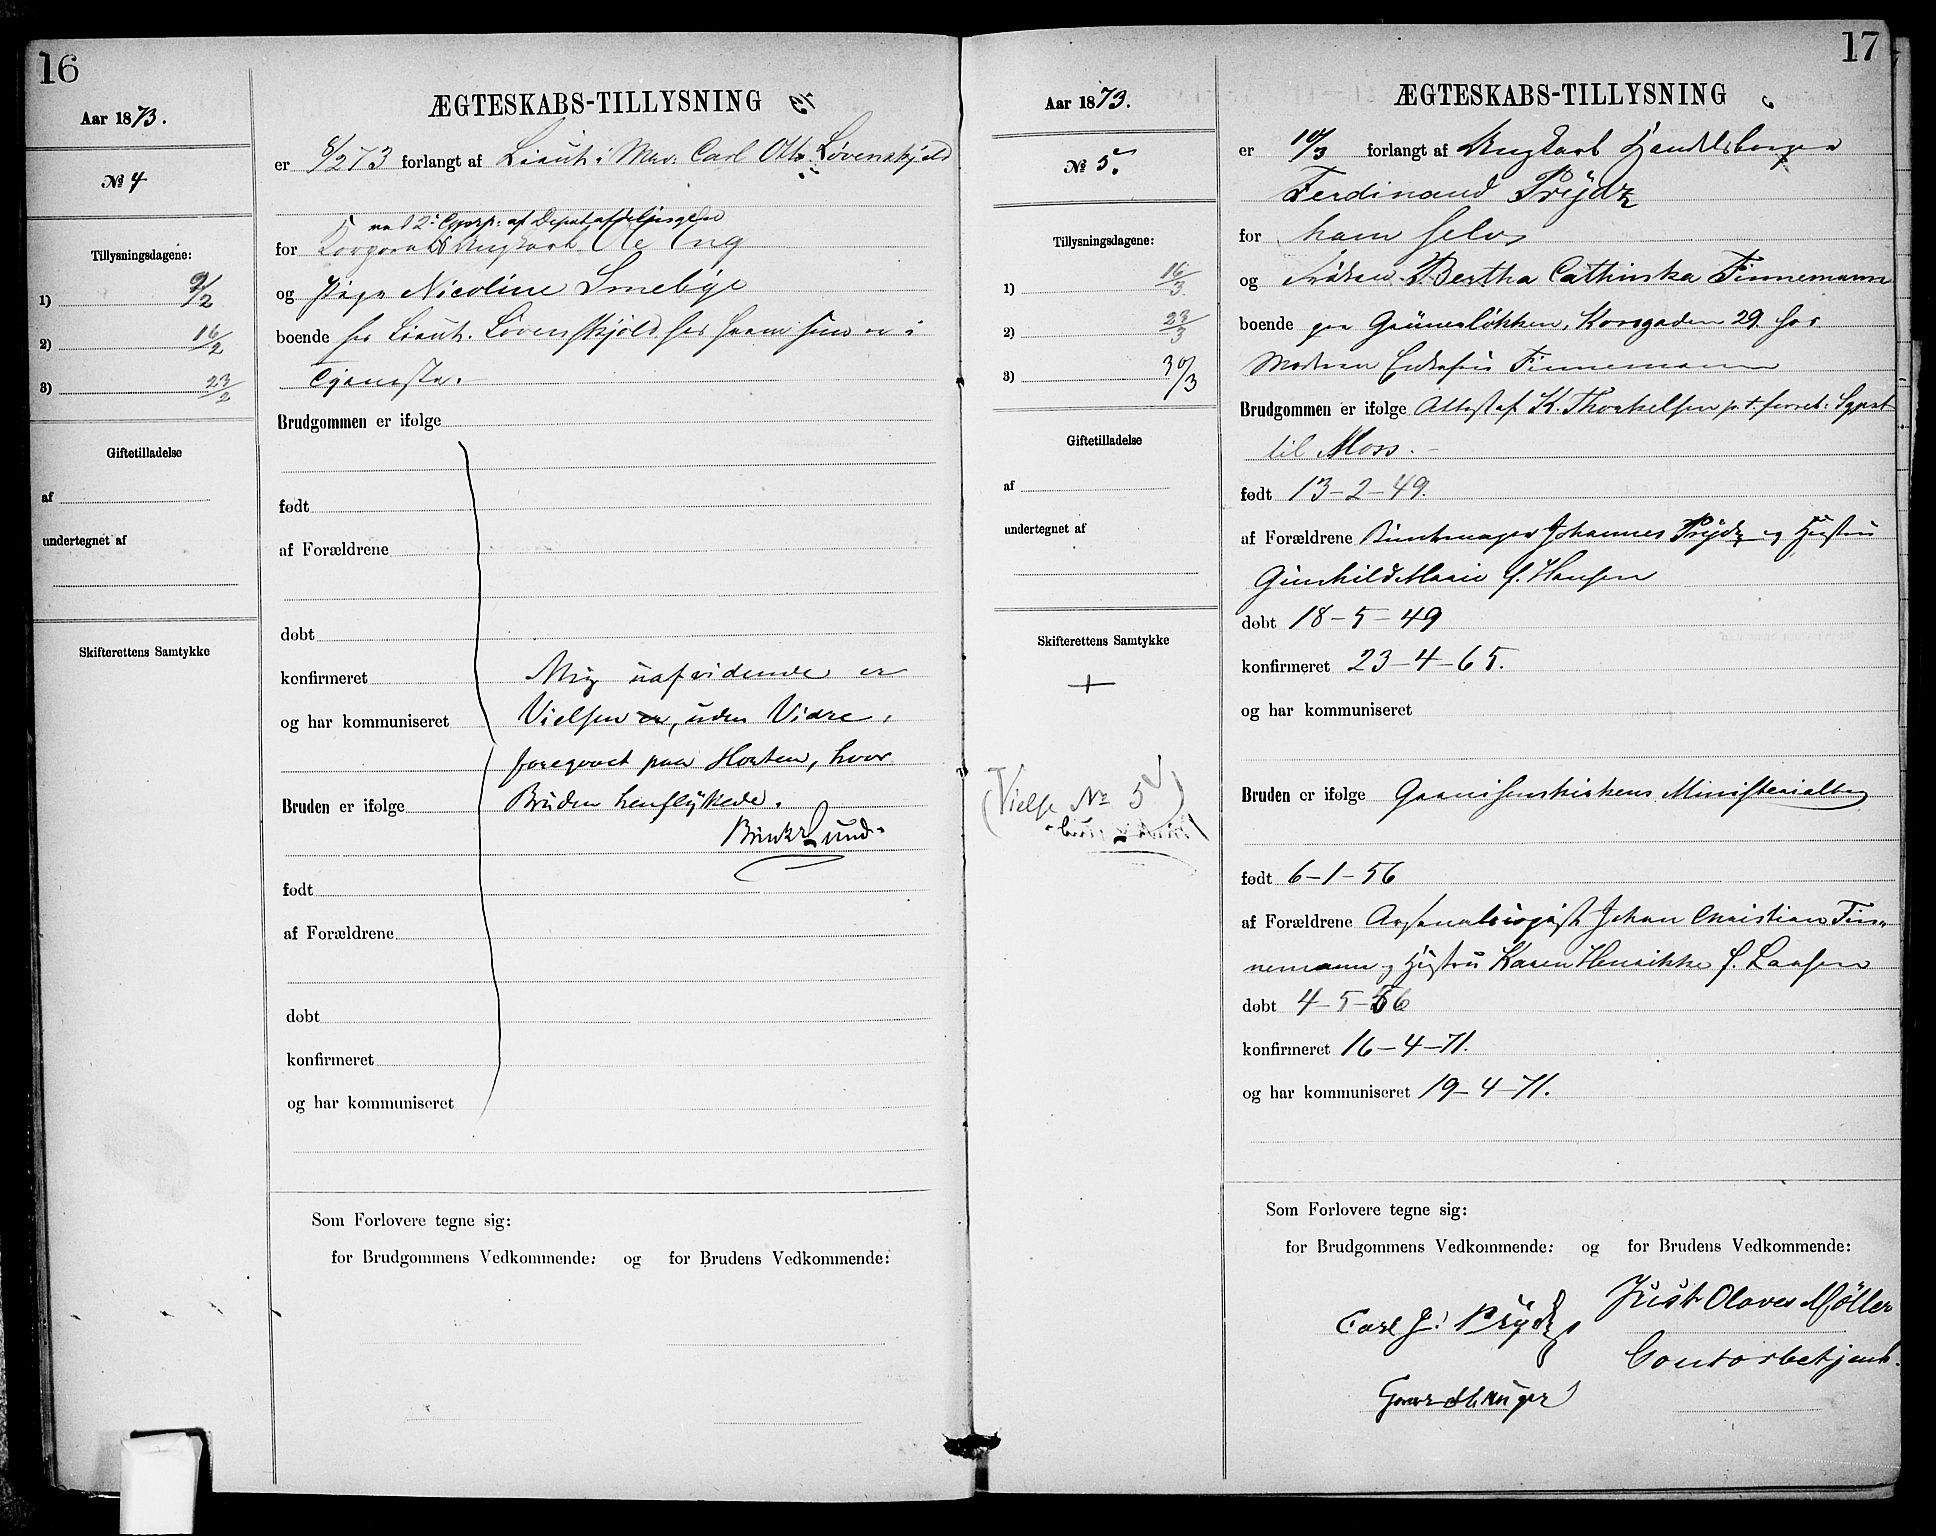 16
Aar 1873.
№ 4
Tillysningsdagene:
1) 9/2
2) 16/2
3) 23/2
Giftetilladelse
af
undertegnet af
Skifterettens Samtykke
ÆGTESKABS-TILLYSNING
er 8/2 73 forlangt af Lieut. i Mar. Carl Otto Løvenskjold
ved 2. Comp. af Depotafdelingen
for Korporal Ungkarl Ole Eng
og Pige Nicoline Smebye
boende hos Lieut. Løvenskjold, hos ham hun er i
Tjeneste.
Brudgommen er ifølge
født
af Forældrene
døbt
konfirmeret
Mig uafvidende er
og har kommuniseret
Vielsen er, uden Videre,
foregaaet paa Horten, hvor
Bruden er ifølge
Bruden henflyttede.
Brinck Lund
født
af Forældrene
døbt
konfirmeret
og har kommuniseret
Som Forlovere tegne sig:
for Brudgommens Vedkommende: og for Brudens Vedkommende:
17
Aar 1873.
№ 5.
Tillysningsdagene:
1) 16/3
2) 23/3
3) 30/3
Giftetilladelse
af
undertegnet af
Skifterettens Samtykke
+
(Vielse № 5)
ÆGTESKABS-TILLYSNING
er 10/3 forlangt af Ungkarl Handelsborger
Ferdinand Prydz
for ham selv
og Frøken Bertha Cathinka Finnemann
boende paa Grünerløkken, Korsgaden 29. hos
Moderen Enkefru Finnemann
Brudgommen er ifølge Attest af K. Thorkelsen p. t. forret. Sgprst
til Moss.
født 13-2-49.
af Forældrene Buntmager Johannes Prydz og Hustru
Gunhild Marie f. Hansen
døbt 18-5-49
konfirmeret 23-4-65.
og har kommuniseret
Bruden er ifølge Garnisonskirkens Ministerialbog
født 6-1-56
af Forældrene Johan Christian Fin-
nemann og Hustru Karen Henrikke f. Larsen
døbt 4-5-56
konfirmeret 16-4-71.
og har kommuniseret 19-4-71.
Som Forlovere tegne sig:
for Brudgommens Vedkommende: og for Brudens Vedkommende:
Carl J. Prydz
Just Olaves Møller
Contorbetjent.